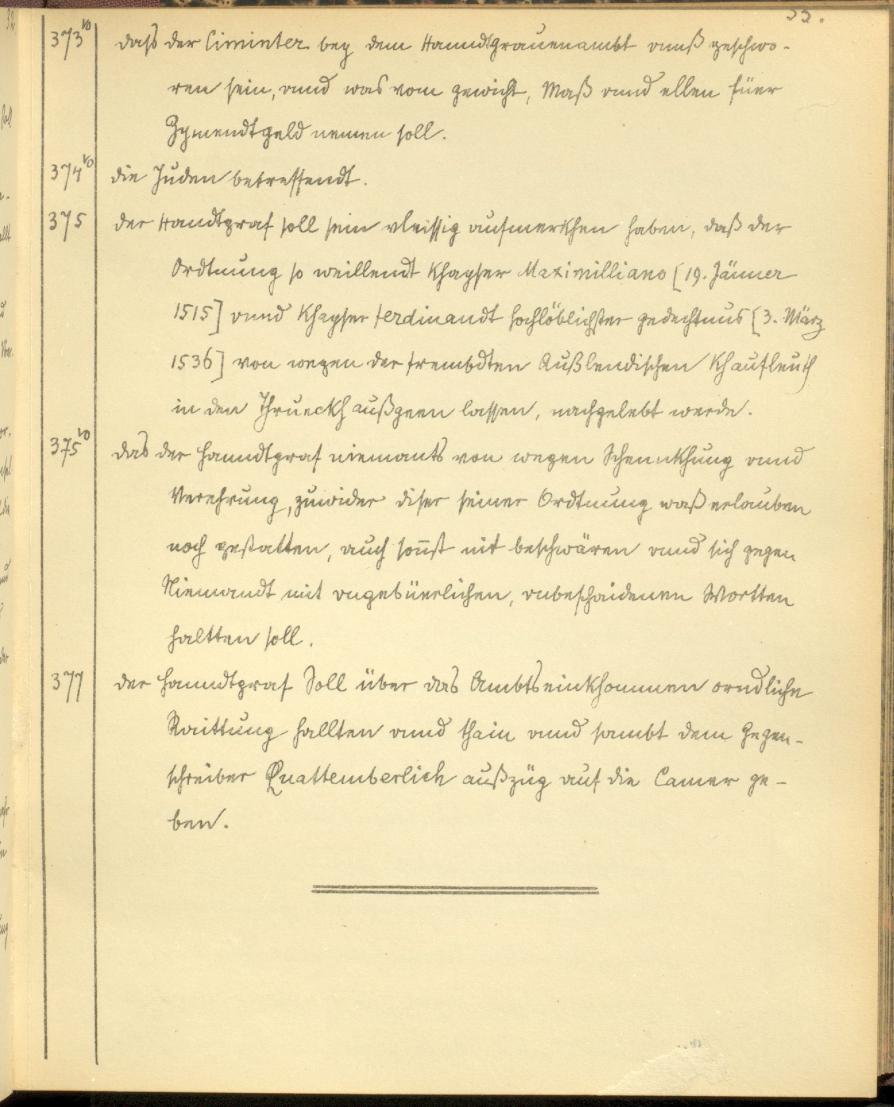 33.
373vo daß der Ciminter bey dem Hanndtgrauenambt muß geschwo-
ren sein, vnnd was vom gewicht, Maß vnnd ellen füer
Zymendtgeld nemen soll.
374vo die Juden betreffendt.
375 der Handtgraf soll sein vleissig aufmerkhen haben, daß der
Ordtnung so weillendt Khayser Maximilliano [19. Jänner
1515] vnnd Khayser Ferdinandt hochlöblichster gedechtnus [3. März
1536] von wegen der frembdten Außlendischen Khaufleuth
in den Thrueckh außgeen lassen, nachgelebt werde.
375vo das der Hanndtgraf niemants von wegen Schennkhung vnnd
Verehrung, zuwider diser seiner Ordtnung waß erlauben
noch gestatten, auch sonst nit beschwären vnnd sich gegen
Niemandt mit vngebüerlichen, vnbeschaidenen Wortten
haltten soll.
377 der Hanndtgraf Soll über das Ambtseinkhommen orndliche
Raittung hallten vnnd thain vnnd sambt dem Gegen-
schreiber Quattemberlich außzüg auf die Camer ge-
ben.